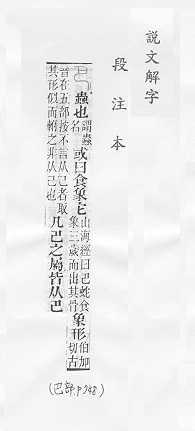 說文解字
段注本
蟲也謂蟲名或曰食象它山海經曰巴蛇食象三歲而出其骨象形伯加切古
音在五部按不言从己者取其形似而軵之非从己也凡巴之屬皆从巴
(巴部.p748)